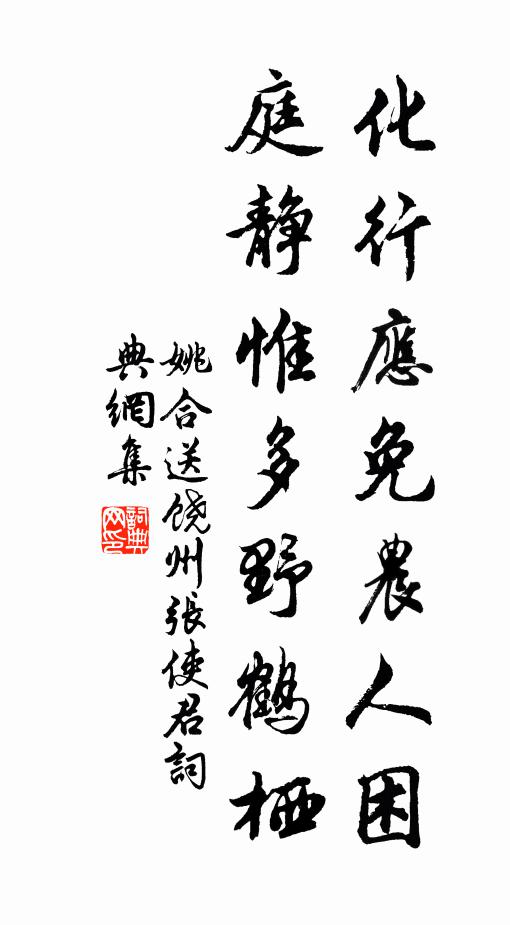 化行應免農人困
庭靜惟多野鶴栖
姚合送饶州張使君詞
典網集
詞典
网印